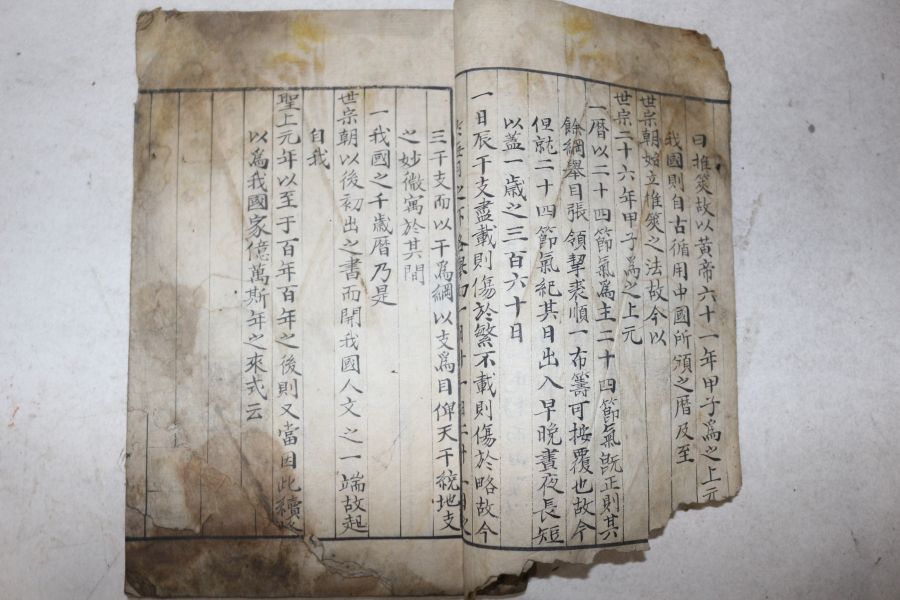 曰推筴故以黃帝六十一年甲子爲之上元
我國則自古循用中國所頒之曆及至
世宗朝始立推筴之法故今以
世宗二十六年甲子爲之上元
一曆以二十四節氣爲主二十四節氣旣正則其
餘綱擧目張領挈裘順一布籌可按覆也故今
但就二十四節氣紀其日出入早晚晝夜長短
以蓋一歲之三百六十日
一日辰干支盡載則傷於繁不載則傷於略故今
三干支而以干爲綱以支爲目俾天干統地支
之妙微寓於其間
一我國之千歲曆乃是
世宗朝以後初出之書而開我國人文之一端故起
自我
聖上元年以至于百年百年之後則又當因此續
以爲我國家億萬斯年之來式云